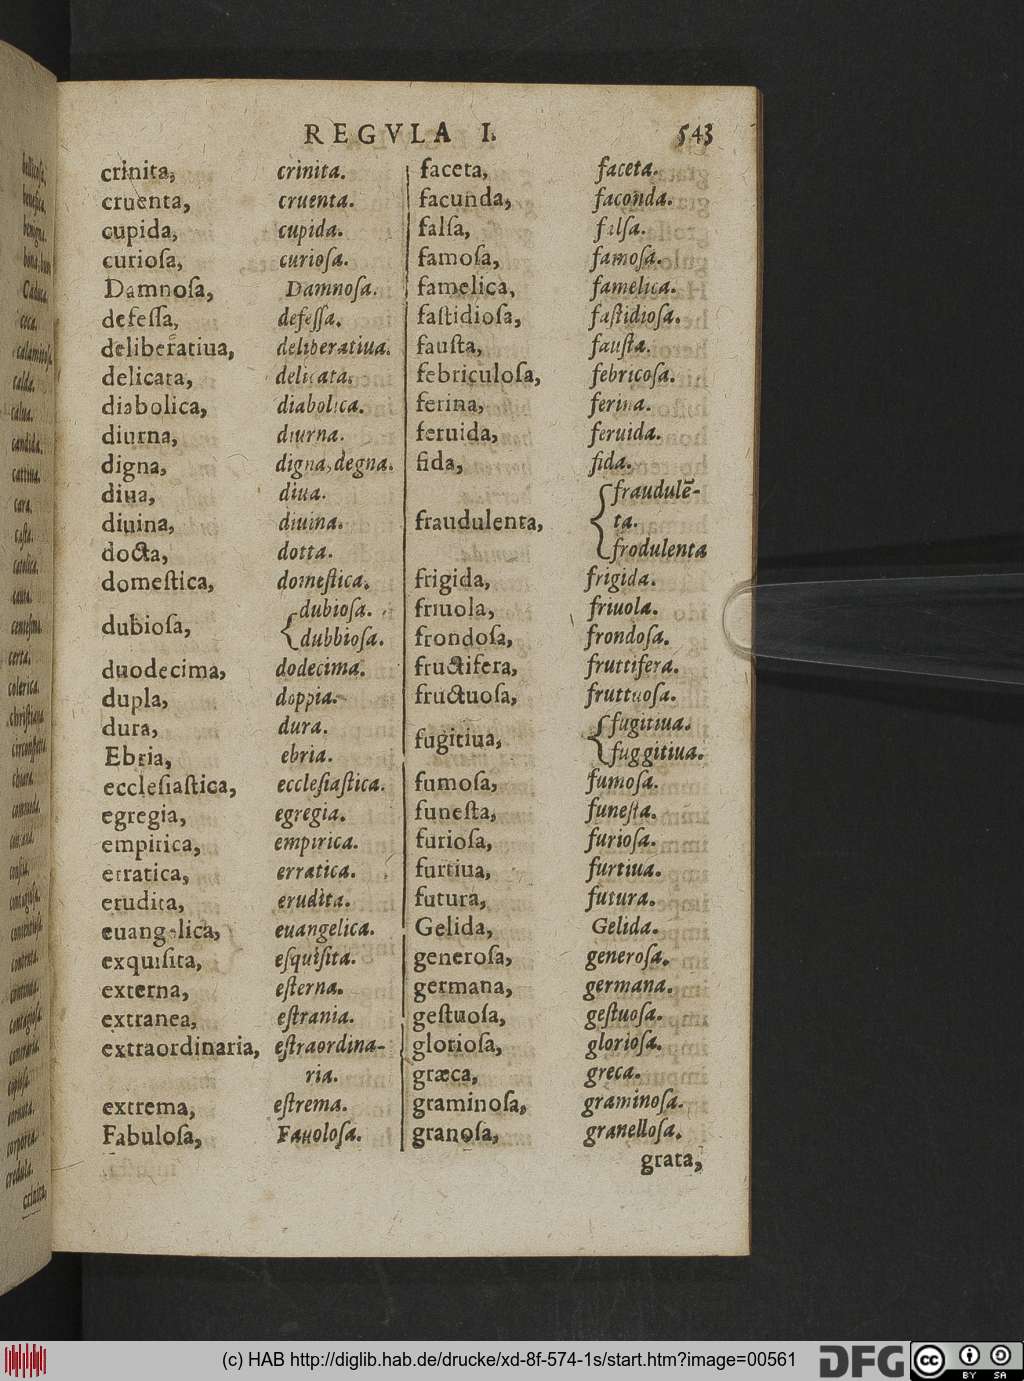 REGVLA I. 543
crinita, crinita.
cruenta, cruenta.
cupida, cupida.
curioſa, curioſa.
Damnoſa, Damnoſa.
defeſſa, defeſſa.
deliberatiua, deliberatiua.
delicata, delicata.
diabolica, diabolica.
diurna, diurna.
digna, digna, degna.
diua, diua.
diuina, diuina.
docta, dotta.
domeſtica, domeſtica.
dubioſa, {dubioſa.
dubbioſa.
duodecima, dodecima.
dupla, doppia.
dura, dura.
Ebria, ebria.
eccleſiaſtica, eccleſiaſtica.
egregia, egregia.
empirica, empirica.
erratica, erratica.
erudita, erudita.
euangelica, euangelica.
exquiſita, eſquiſita.
externa, eſterna.
extranea, eſtrania.
extraordinaria, eſtraordina-
ria.
extrema, eſtrema.
Fabuloſa, Fauoloſa.
faceta, faceta.
facunda, faconda.
falſa, falſa.
famoſa, famoſa.
famelica, famelica.
faſtidioſa, faſtidioſa.
fauſta, fauſta.
febriculoſa, febricoſa.
ferina, ferina.
feruida, feruida.
fida, fida.
fraudulenta, {fraudulē-
ta.
frodulenta
frigida, frigida.
friuola, friuola.
frondoſa, frondoſa.
fructifera, fruttifera.
fructuoſa, fruttuoſa.
fugitiua, {fugitiua.
fuggitiua.
fumoſa, fumoſa.
funeſta, funeſta.
furioſa, furioſa.
furtiua, furtiua.
futura, futura.
Gelida, Gelida.
generoſa, generoſa.
germana, germana.
geſtuoſa, geſtuoſa.
glorioſa, glorioſa.
græca, greca.
graminoſa, graminoſa.
granoſa, granelloſa.
grata,
(c) HAB http://diglib.hab.de/drucke/xd-8f-574-1s/start.htm?image=00561 DFG cc BY SA